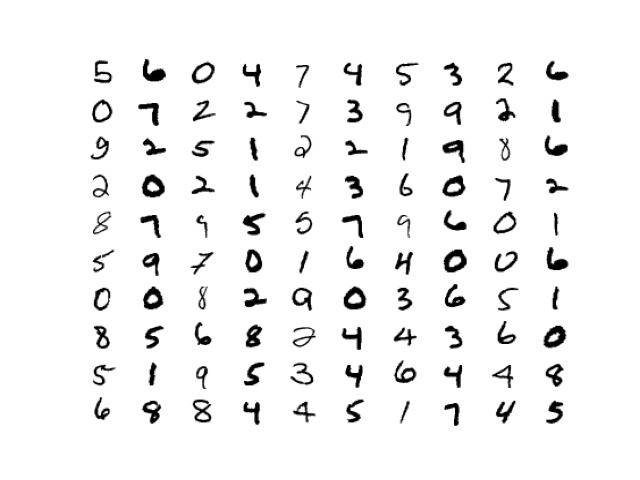 5 6 0 4 7 4 5 3 2 6
0 7 2 2 7 3 9 9 2 1
9 2 5 1 2 2 1 9 8 6
2 0 2 1 4 3 6 0 7 2
8 7 9 5 5 7 9 6 0 1
5 9 7 0 1 6 4 0 0 6
0 0 8 2 9 0 3 6 5 1
8 5 6 8 2 4 4 3 6 0
5 1 9 5 3 4 6 4 4 8
6 8 8 4 4 5 1 7 4 5